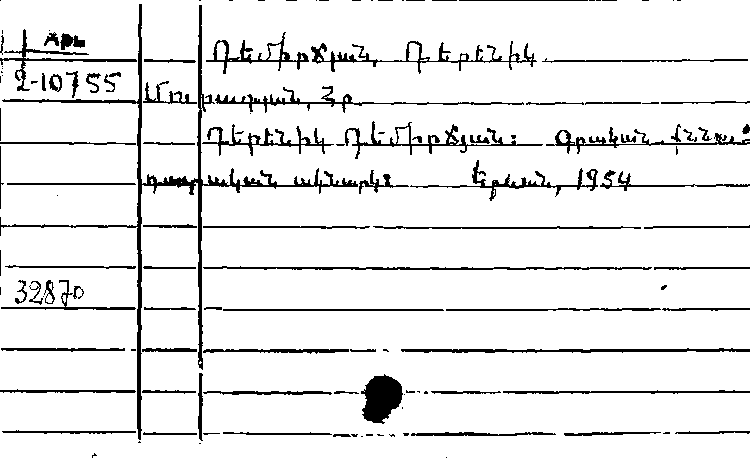 Арм
2-10755
Դեմիրճյան, Դերենիկ
Մուրադյան, Հր.
Դերենիկ Դեմիրճյան։ Գրական քննա-
դատական ակնարկ։ Երևան, 1954
32870